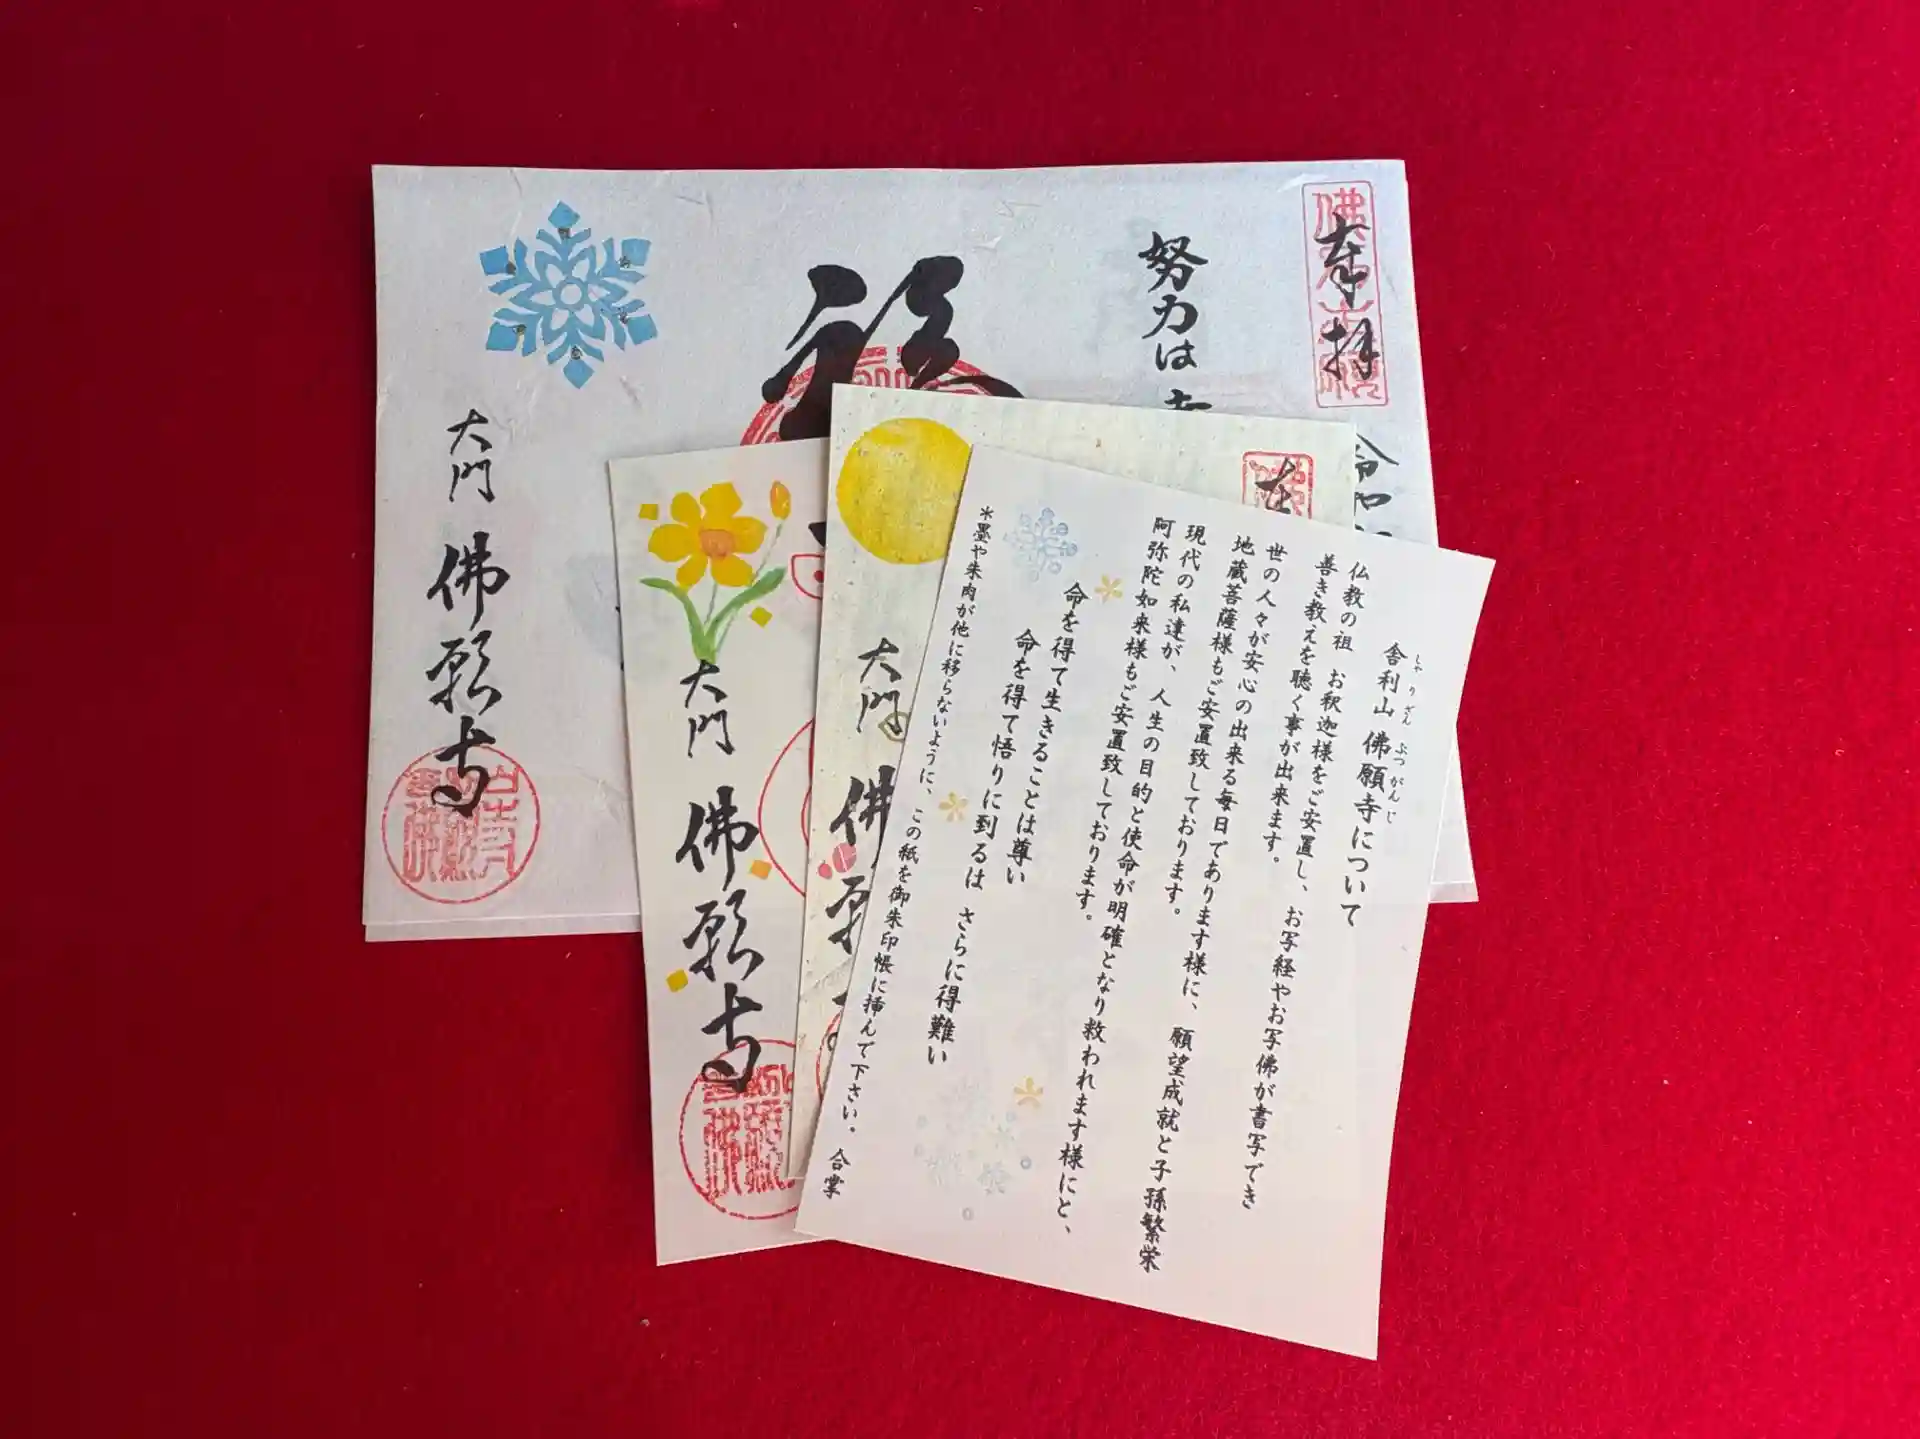 奉拝
努力は
大門
佛願寺
大門
佛願寺
大門
佛願
舎利山 佛願寺について
しゃりざん ぶつがんじ
仏教の祖 お釈迦様をご安置し、お写経やお写佛が書写でき
善き教えを聴く事が出来ます。
世の人々が安心の出来る毎日であります様に、願望成就と子孫繁栄
地蔵菩薩様もご安置致しております。
現代の私達が、人生の目的と使命が明確となり救われます様にと、
阿弥陀如来様もご安置致しております。
命を得て生きることは尊い
命を得て悟りに到るは さらに得難い
*墨や朱肉が他に移らないように、この紙を御朱印帳に挿んで下さい。合掌